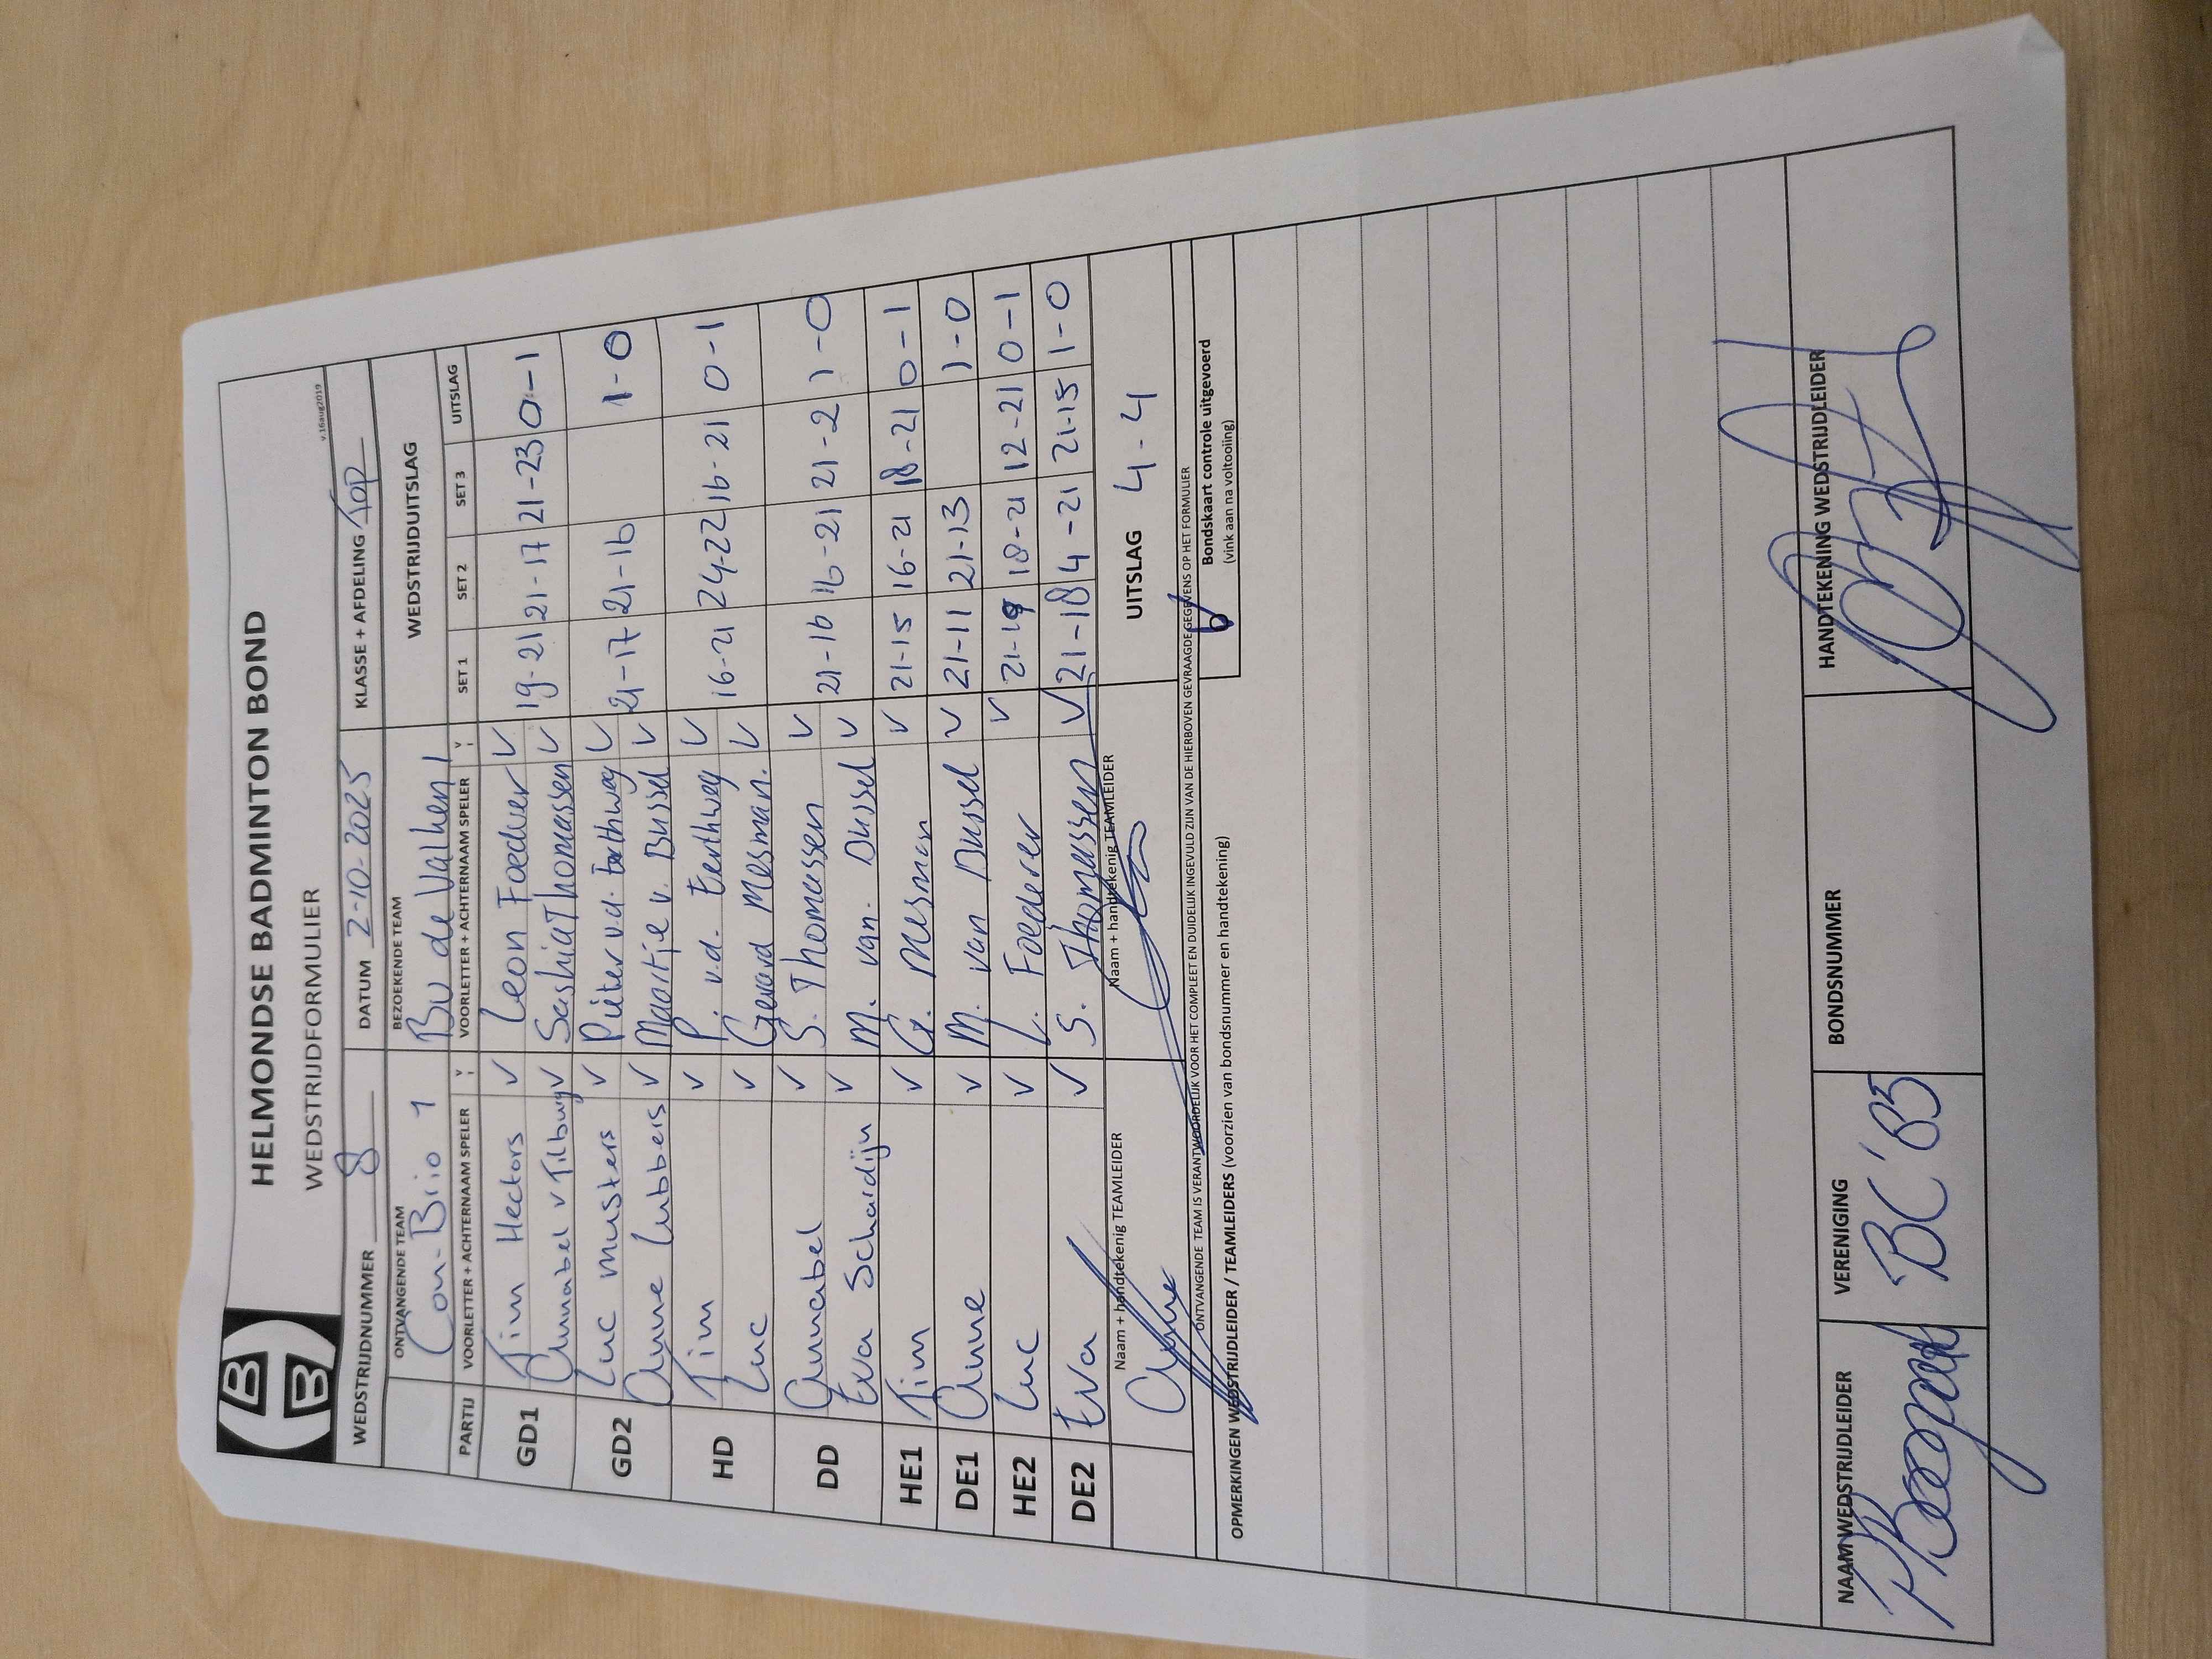 HELMONDSE BADMINTON BOND
WEDSTRIJDFORMULIER
v.16aug2019
WEDSTRIJDNUMMER 8 DATUM 2-10-2025 KLASSE + AFDELING Top
ONTVANGENDE TEAM BEZOEKENDE TEAM WEDSTRIJDUITSLAG
Con-Brio 1 BV de Valken 1
PARTIJ VOORLETTER + ACHTERNAAM SPELER V VOORLETTER + ACHTERNAAM SPELER V SET 1 SET 2 SET 3 UITSLAG
GD1 Tim Hectors V Leon Foederer V 19-21 21-17 21-23 0-1
Annabel v Tilburg V Saskia Thomassen V
GD2 Luc Musters V Pieter v.d. Eerthweg V 21-17 21-16 1-0
Anne Lubbers V Maartje v. Dussel V
HD Tim V P. v.d. Eerthweg V 16-21 24-22 16-21 0-1
Luc V Gerard Mesman. V
DD Annabel V S. Thomassen V 21-16 16-21 21-2 1-0
Eva Schardijn V M. van. Dussel V
HE1 Tim V G. Mesman V 21-15 16-21 18-21 0-1
DE1 Anne V M. van Dussel V 21-11 21-13 1-0
HE2 Luc V L. Foederer V 21-19 18-21 12-21 0-1
DE2 Eva V S. Thomassen V 21-18 4-21 21-15 1-0
Naam + handtekenig TEAMLEIDER Naam + handtekenig TEAMLEIDER UITSLAG 4-4
Anne
ONTVANGENDE TEAM IS VERANTWOORDELIJK VOOR HET COMPLEET EN DUIDELIJK INGEVULD ZIJN VAN DE HIERBOVEN GEVRAAGDE GEGEVENS OP HET FORMULIER
V Bondskaart controle uitgevoerd
(vink aan na voltooiing)
OPMERKINGEN WEDSTRIJDLEIDER / TEAMLEIDERS (voorzien van bondsnummer en handtekening)
NAAM WEDSTRIJDLEIDER VERENIGING BONDSNUMMER HANDTEKENING WEDSTRIJDLEIDER
BC'85